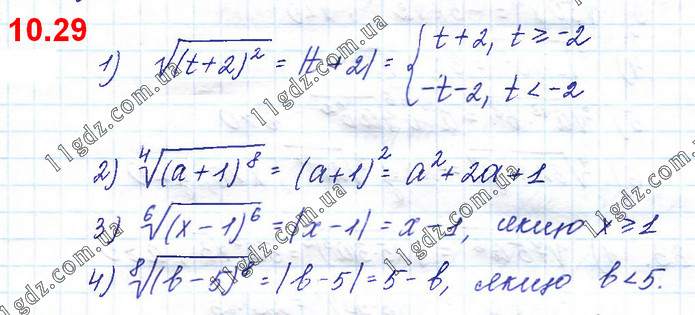 10.29
1) √(t+2)² = |t+2| = { t+2, t ≥ -2
-t-2, t < -2
2) ⁴√(a+1)⁸ = (a+1)² = a²+2a+1
3) ⁶√(x-1)⁶ = |x-1| = x-1, якщо x ≥ 1
4) ⁸√(b-5)⁸ = |b-5| = 5-b, якщо b < 5.
11gdz.com.ua
11gdz.com.ua
11gdz.com.ua
11gdz.com.ua
11gdz.com.ua
11gdz.com.ua
11gdz.com.ua